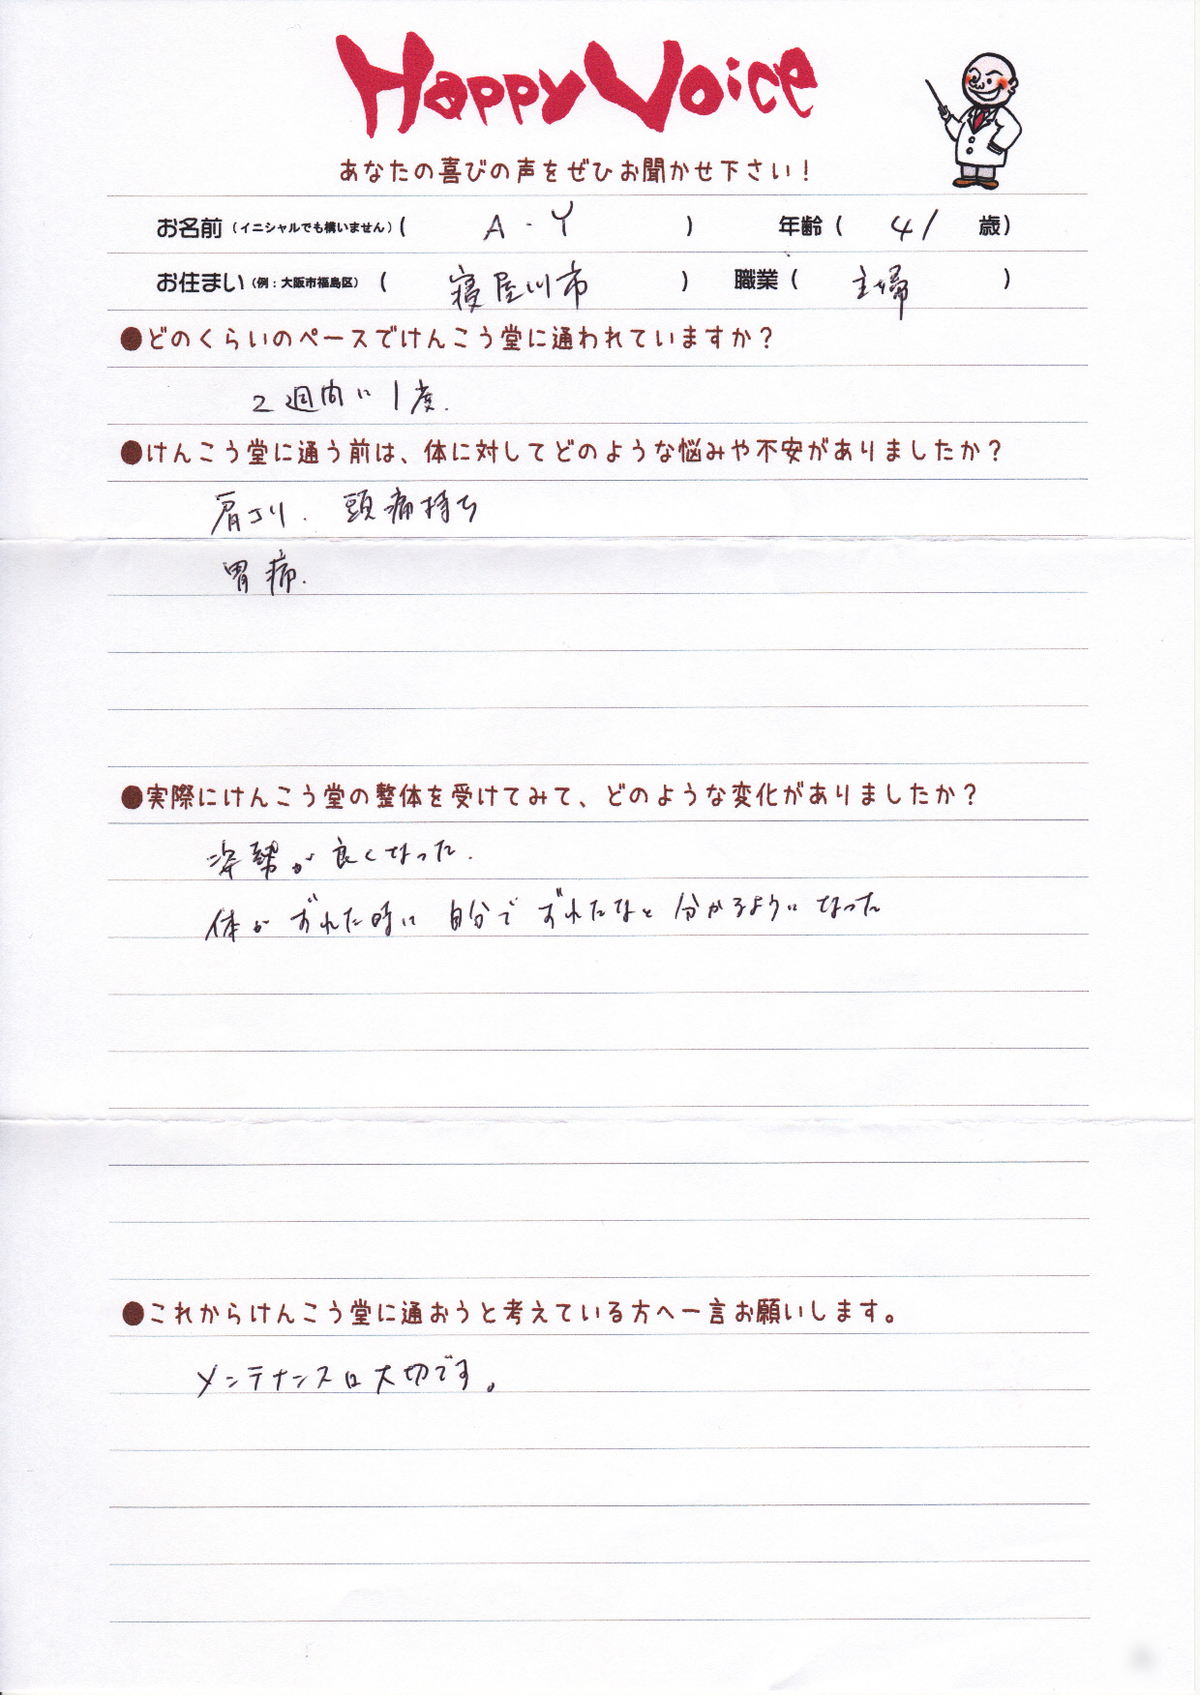 Happy Voice
あなたの喜びの声をぜひお聞かせ下さい！
お名前（イニシャルでも構いません）( A・Y ) 年齢 ( 41 歳)
お住まい（例：大阪市福島区） ( 寝屋川市 ) 職業 ( 主婦 )
●どのくらいのペースでけんこう堂に通われていますか？
2週間に1度.
●けんこう堂に通う前は、体に対してどのような悩みや不安がありましたか？
肩コリ. 頭痛持ち
胃痛.
●実際にけんこう堂の整体を受けてみて、どのような変化がありましたか？
姿勢が良くなった.
体がずれた時に自分でずれたなと分かるようになった
●これからけんこう堂に通おうと考えている方へ一言お願いします。
メンテナンスは大切です。